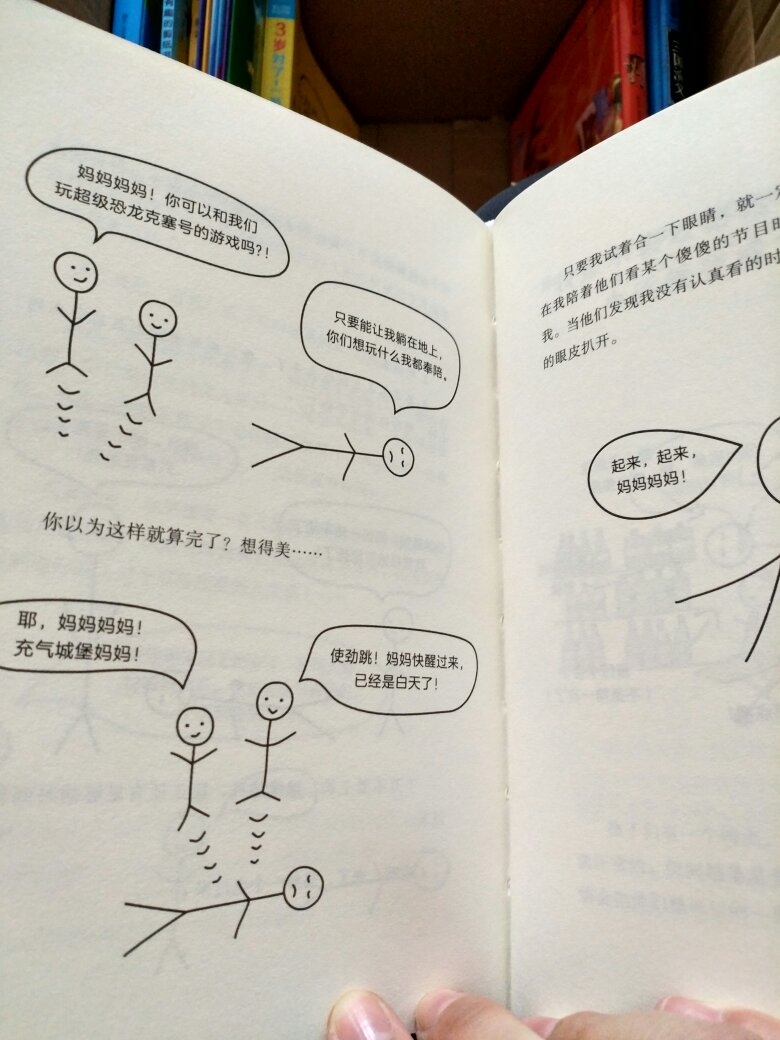 妈妈妈妈！你可以和我们
玩超级恐龙克塞号的游戏吗?！
只要能让我躺在地上，
你们想玩什么我都奉陪。
你以为这样就算完了？想得美……
耶，妈妈妈妈！
充气城堡妈妈！
使劲跳！妈妈快醒过来，
已经是白天了！
只要我试着合一下眼睛，就一定
在我陪着他们看某个傻傻的节目时
我。当他们发现我没有认真看的时
的眼皮扒开。
起来，起来，
妈妈妈妈！
3岁